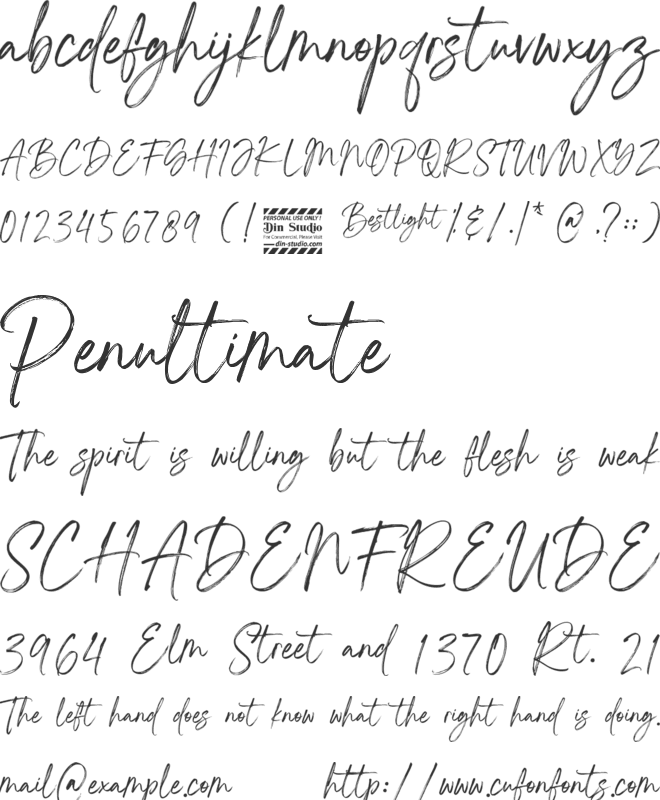 abcdefghijklmnopqrstuvwxyz
ABCDEFGHIJKLMNOPQRSTUVWXYZ
0123456789 (! PERSONAL USE ONLY ! Din Studio For Commercial, Please Visit din-studio.com Bestlight %&/.|* @.?::)
Penultimate
The spirit is willing but the flesh is weak
SCHADENFREUDE
3964 Elm Street and 1370 Rt. 21
The left hand does not know what the right hand is doing.
mail@example.com http://www.cufonfonts.com